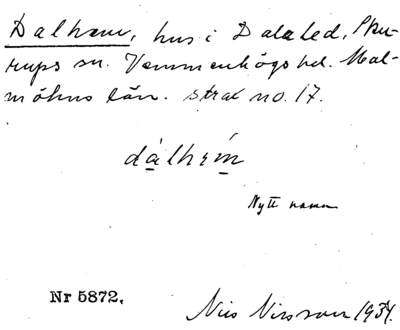 Dalhem, hus i Dalaled, Sku-
rups sn. Vemmenhögs hd. Mal-
möhus län. strax no. 17.
dálhęm
Nytt namn
Nr 5872,
Nils Nilsson 1934.